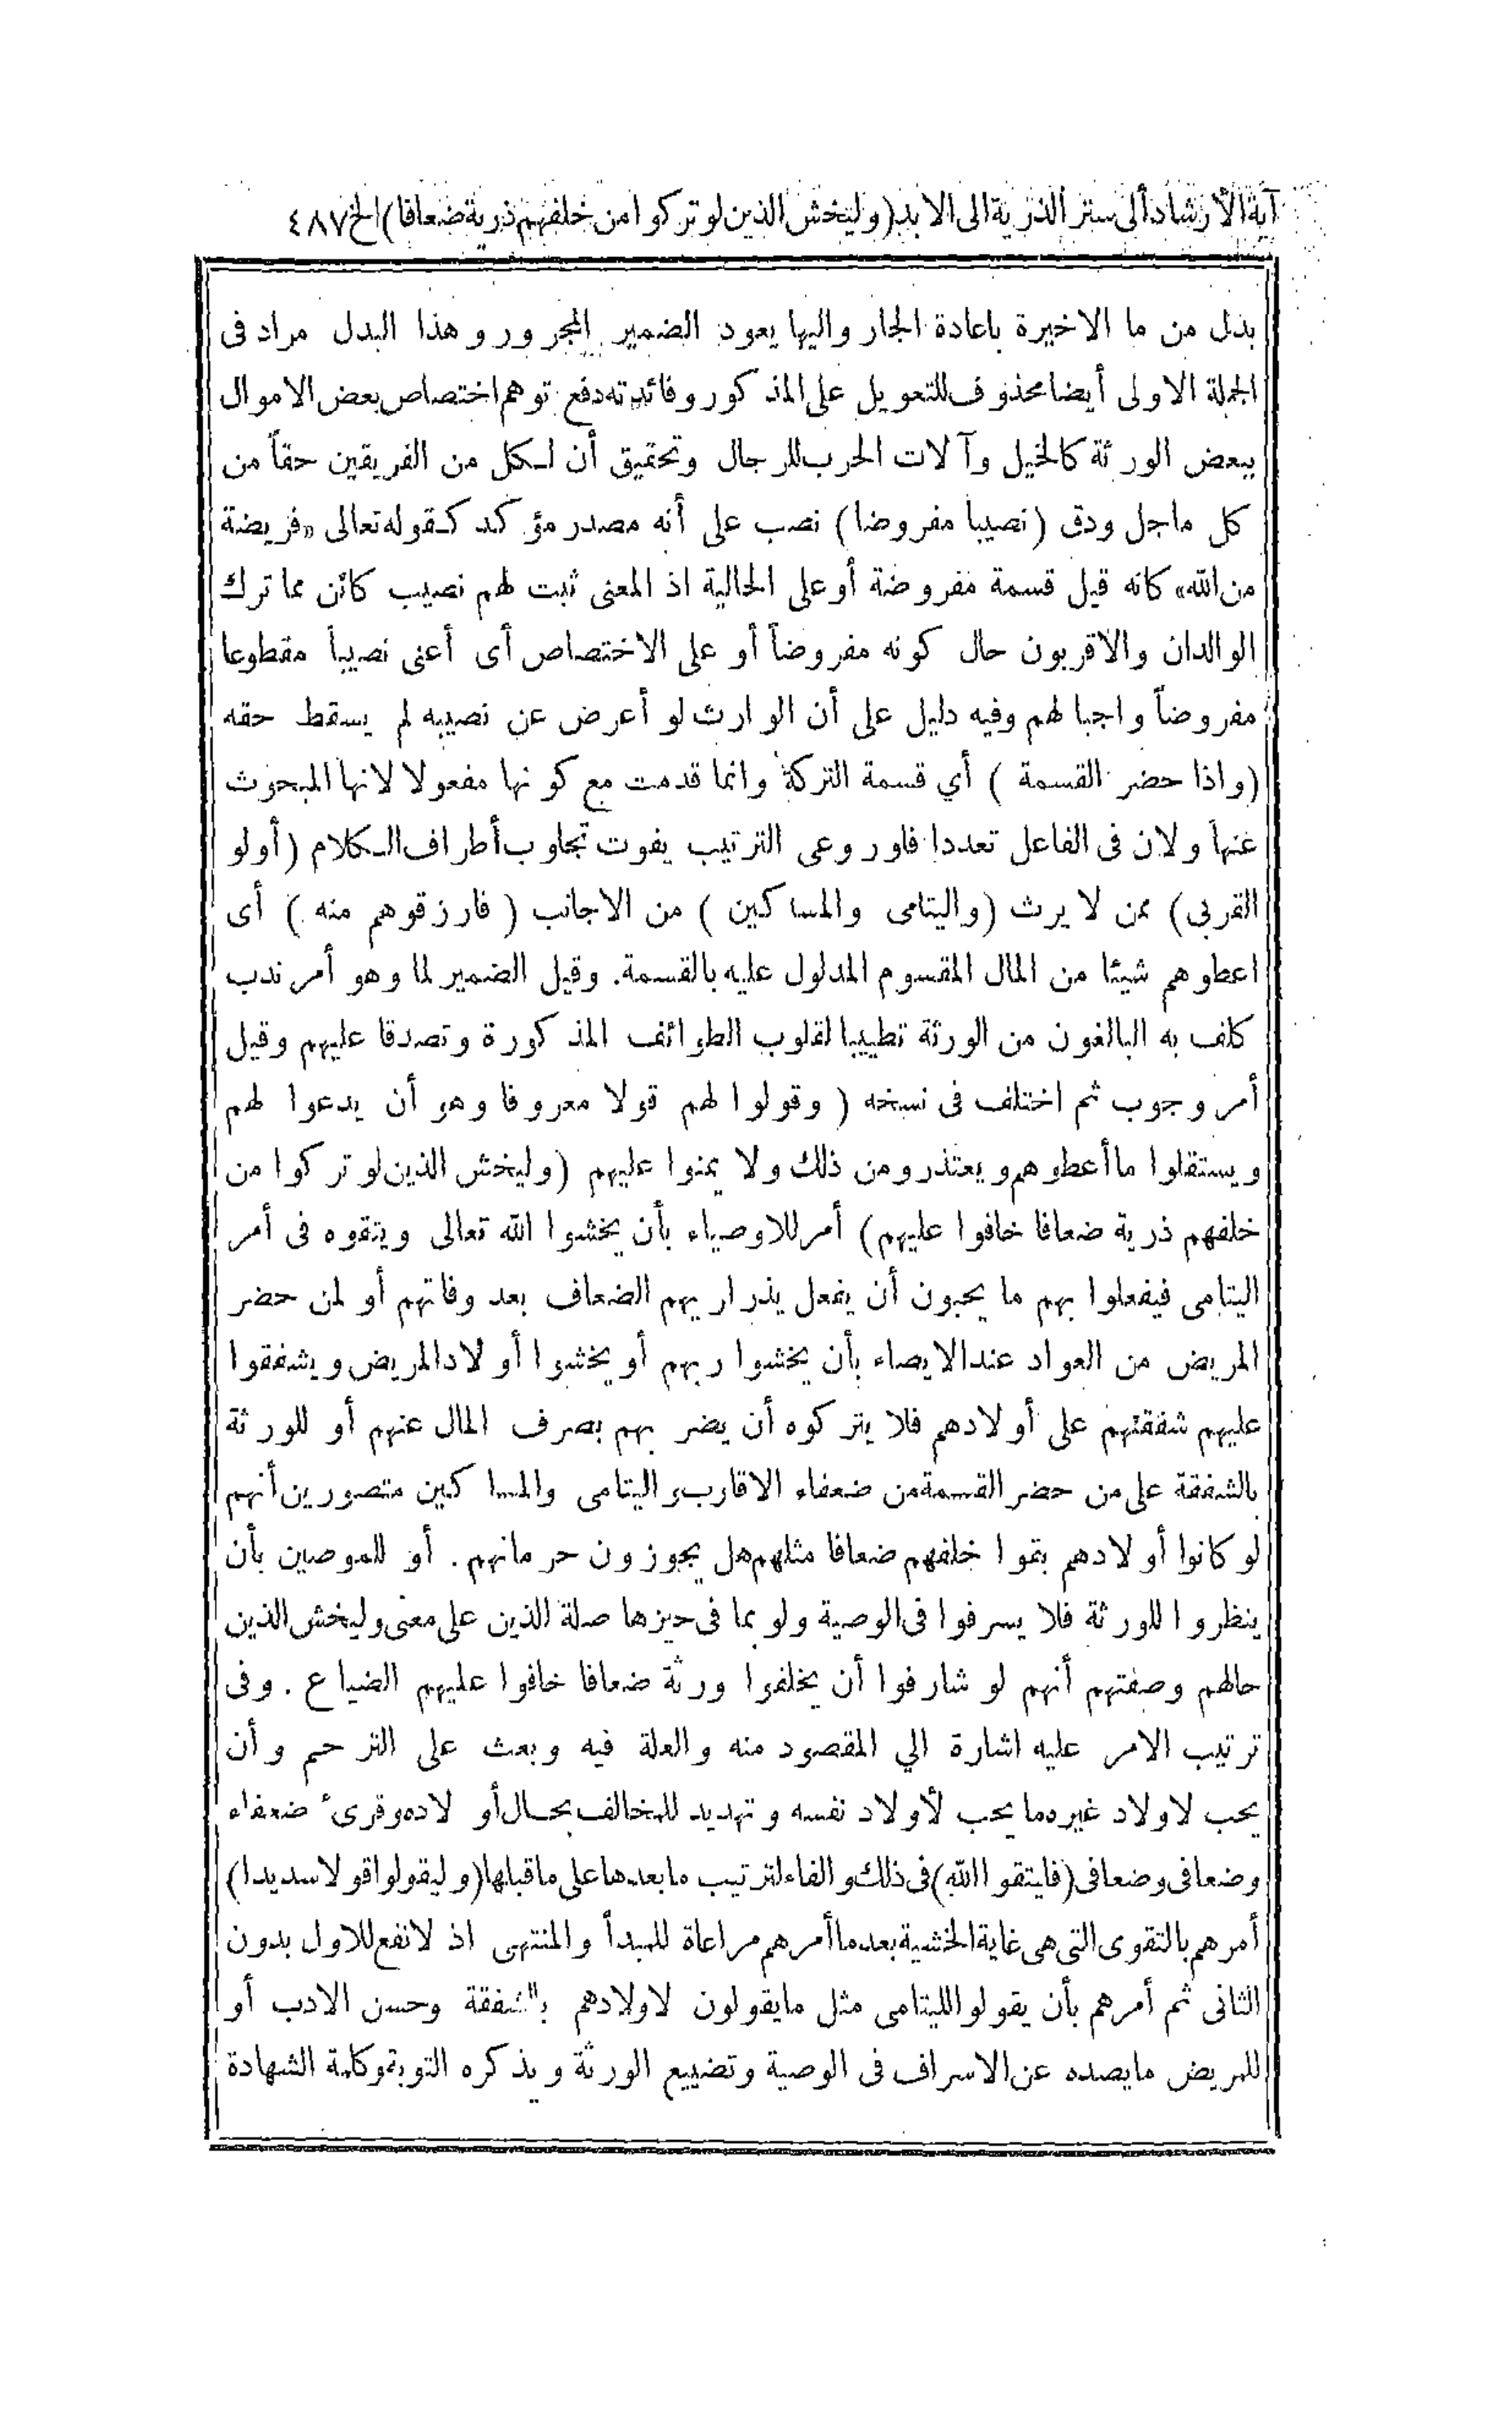 آية الأرشاد ألى ستر الذرية الى الابد (وليخش الذين لو تركوا من خلفهم ذرية ضعافا) الخ ٤٨٧
بدل من ما الاخيرة باعادة الجار واليها يعود الضمير المجرور وهذا البدل مراد فى
الجملة الاولى أيضا محذوف للتعويل على المذكور وفائدته دفع توهم اختصاص بعض الاموال
ببعض الورثة كالخيل وآلات الحرب للرجال وتحقيق أن لكل من الفريقين حقاً من
كل ماجل ودق (نصيبا مفروضا) نصب على أنه مصدر مؤكد كقوله تعالى «فريضة
من الله» كانه قيل قسمة مفروضة أو على الحالية اذ المعنى ثبت لهم نصيب كائن مما ترك
الوالدان والاقربون حال كونه مفروضاً أو على الاختصاص أى أعنى نصيباً مقطوعا
مفروضاً واجبا لهم وفيه دليل على أن الوارث لو أعرض عن نصيبه لم يسقط حقه
(واذا حضر القسمة ) أي قسمة التركة وانما قدمت مع كونها مفعولا لانها المبحوث
عنها ولان فى الفاعل تعددا فلو روعى الترتيب يفوت تجاوب أطراف الكلام (أولو
القربى) ممن لا يرث (واليتامى والمساكين ) من الاجانب ( فارزقوهم منه ) أى
اعطوهم شيئا من المال المقسوم المدلول عليه بالقسمة. وقيل الضمير لما وهو أمر ندب
كلف به البالغون من الورثة تطييبا لقلوب الطوائف المذكورة وتصدقا عليهم وقيل
أمر وجوب ثم اختلف فى نسخه ( وقولوا لهم قولا معروفا وهو أن يدعوا لهم
ويستقلوا ما أعطوهم ويعتذرو من ذلك ولا يمنوا عليهم (وليخش الذين لو تركوا من
خلفهم ذرية ضعافا خافوا عليهم) أمر للاوصياء بأن يخشوا الله تعالى ويتقوه فى أمر
اليتامى فيفعلوا بهم ما يحبون أن يفعل بذراريهم الضعاف بعد وفاتهم أو لمن حضر
المريض من العواد عند الايصاء بأن يخشوا ربهم أو يخشوا أولاد المريض ويشفقوا
عليهم شفقتهم على أولادهم فلا يتركوه أن يضر بهم بصرف المال عنهم أو للورثة
بالشفقة على من حضر القسمة من ضعفاء الاقارب واليتامى والمساكين متصورين أنهم
لو كانوا أولادهم بقوا خلفهم ضعافا مثلهم هل يجوزون حرمانهم. أو للموصين بأن
ينظروا للورثة فلا يسرفوا فى الوصية ولو بما فى حيزها صلة الذين على معنى وليخش الذين
حالهم وصفتهم أنهم لو شارفوا أن يخلفوا ورثة ضعافا خافوا عليهم الضياع. وفى
ترتيب الامر عليه اشارة الي المقصود منه والعلة فيه وبعث على الترحم وأن
يحب لاولاد غيره ما يحب لأولاد نفسه وتهديد للمخالف بحال أولاده وقرىء ضعفاء
وضعافى وضعافى (فليتقوا الله) فى ذلك والفاء لترتيب ما بعدها على ما قبلها (وليقولوا قولا سديدا)
أمرهم بالتقوى التى هى غاية الخشية بعد ما أمرهم مراعاة للمبدأ والمنتهى اذ لا نفع للاول بدون
الثانى ثم أمرهم بأن يقولوا لليتامى مثل مايقولون لاولادهم بالشفقة وحسن الادب أو
للمريض مايصده عن الاسراف فى الوصية وتضييع الورثة ويذكره التوبة وكلمة الشهادة